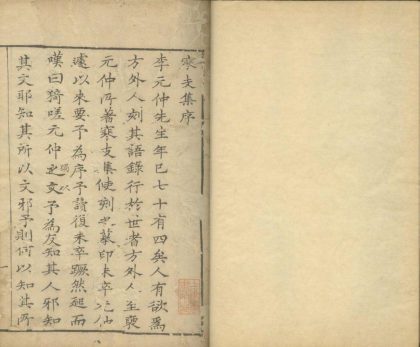 寒支集序
李元仲先生年已七十有四矣人有欲爲
方外人刻其語錄行於世者方外人至褻
元仲所著寒支集使刻之摹印未卒
遽以來要予為序予讀復未卒蹶然起而
嘆曰猗嗟元仲之文予為反知其人邪知
其文耶知其所以文邪予則何以知其所